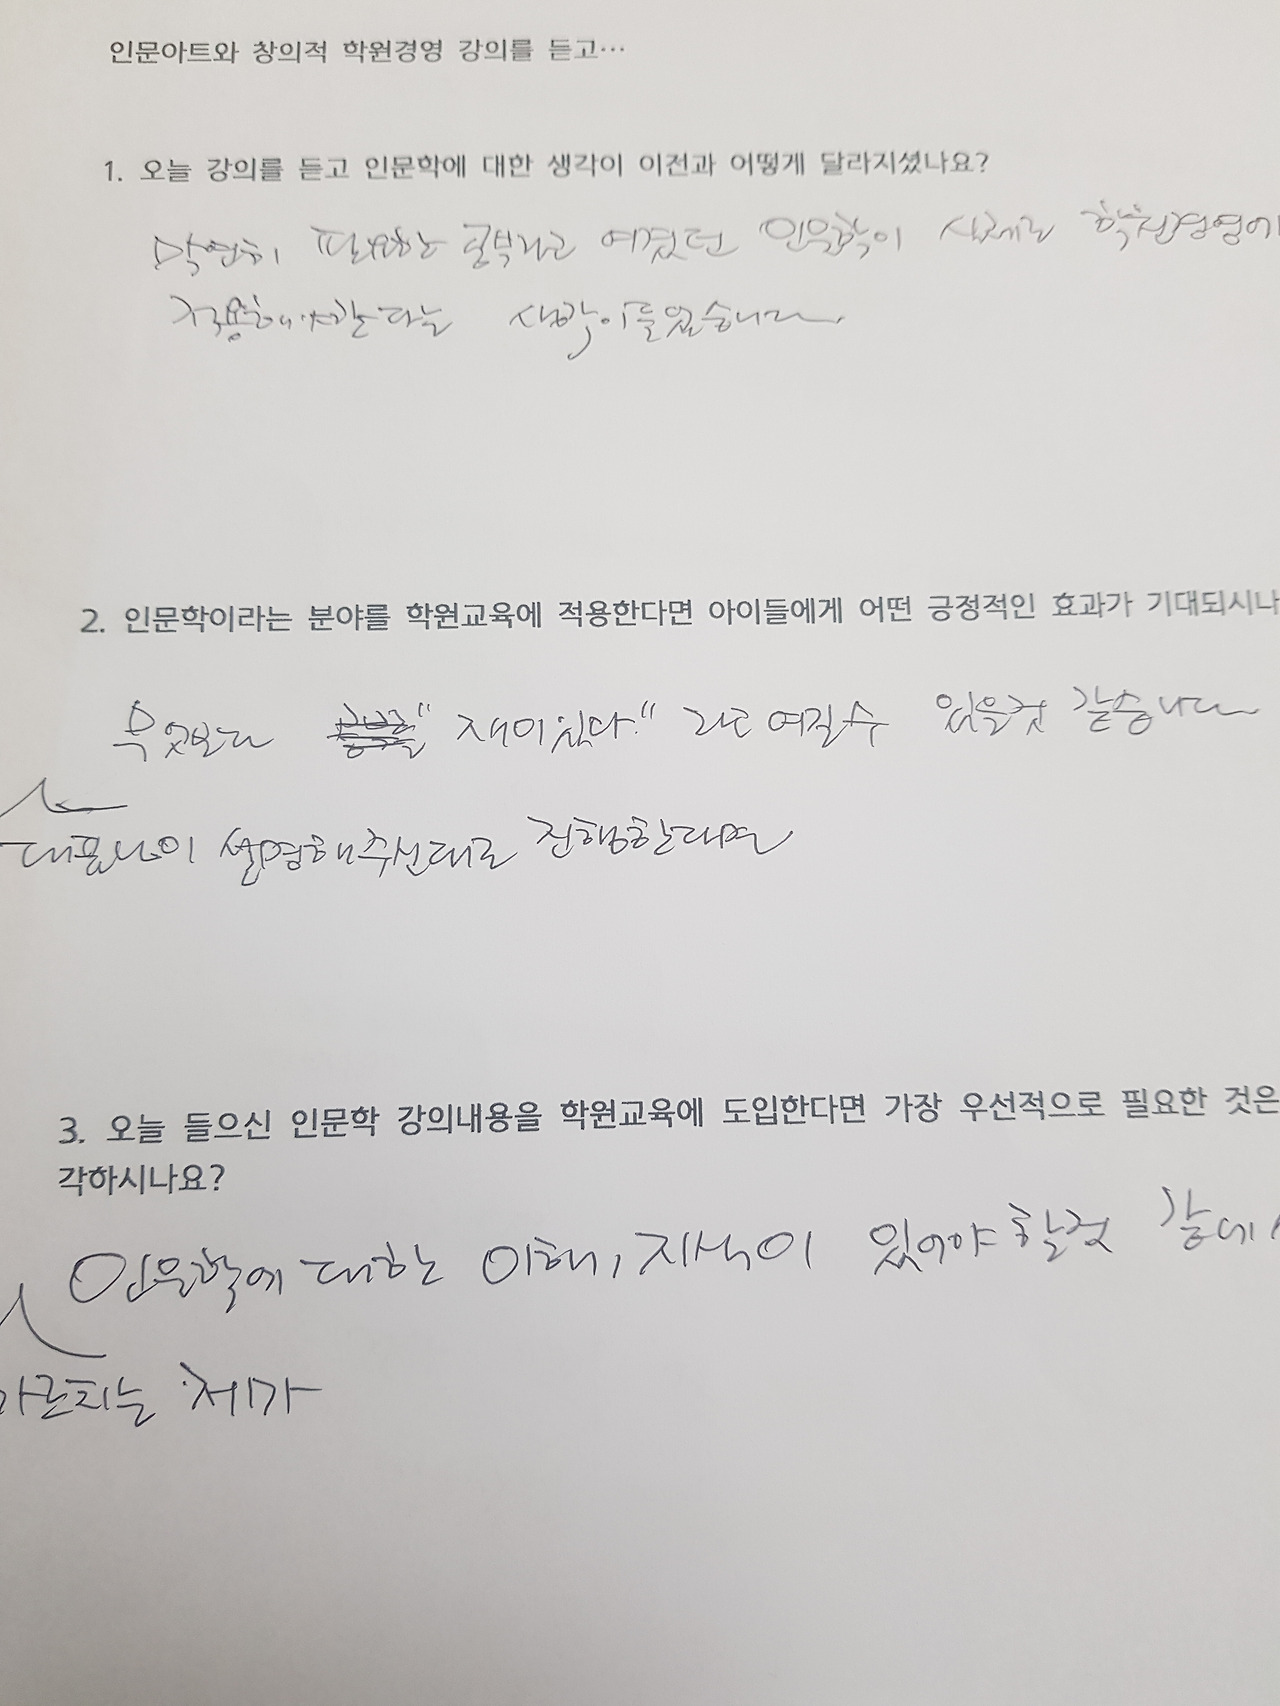 인문아트와 창의적 학원경영 강의를 듣고…
1. 오늘 강의를 듣고 인문학에 대한 생각이 이전과 어떻게 달라지셨나요?
막연히 필요한 공부라고 여겼던 인문학이 실제로 학원경영에
적용해야한다는 생각이 들었습니다.
2. 인문학이라는 분야를 학원교육에 적용한다면 아이들에게 어떤 긍정적인 효과가 기대되시나
무엇보다 "재미있다." 라고 여길 수 있을것 같습니다
설명해주신대로 진행한다면
3. 오늘 들으신 인문학 강의내용을 학원교육에 도입한다면 가장 우선적으로 필요한 것은
각하시나요?
인문학에 대한 이해, 지식이 있어야 할것 같네
가르치는 제가